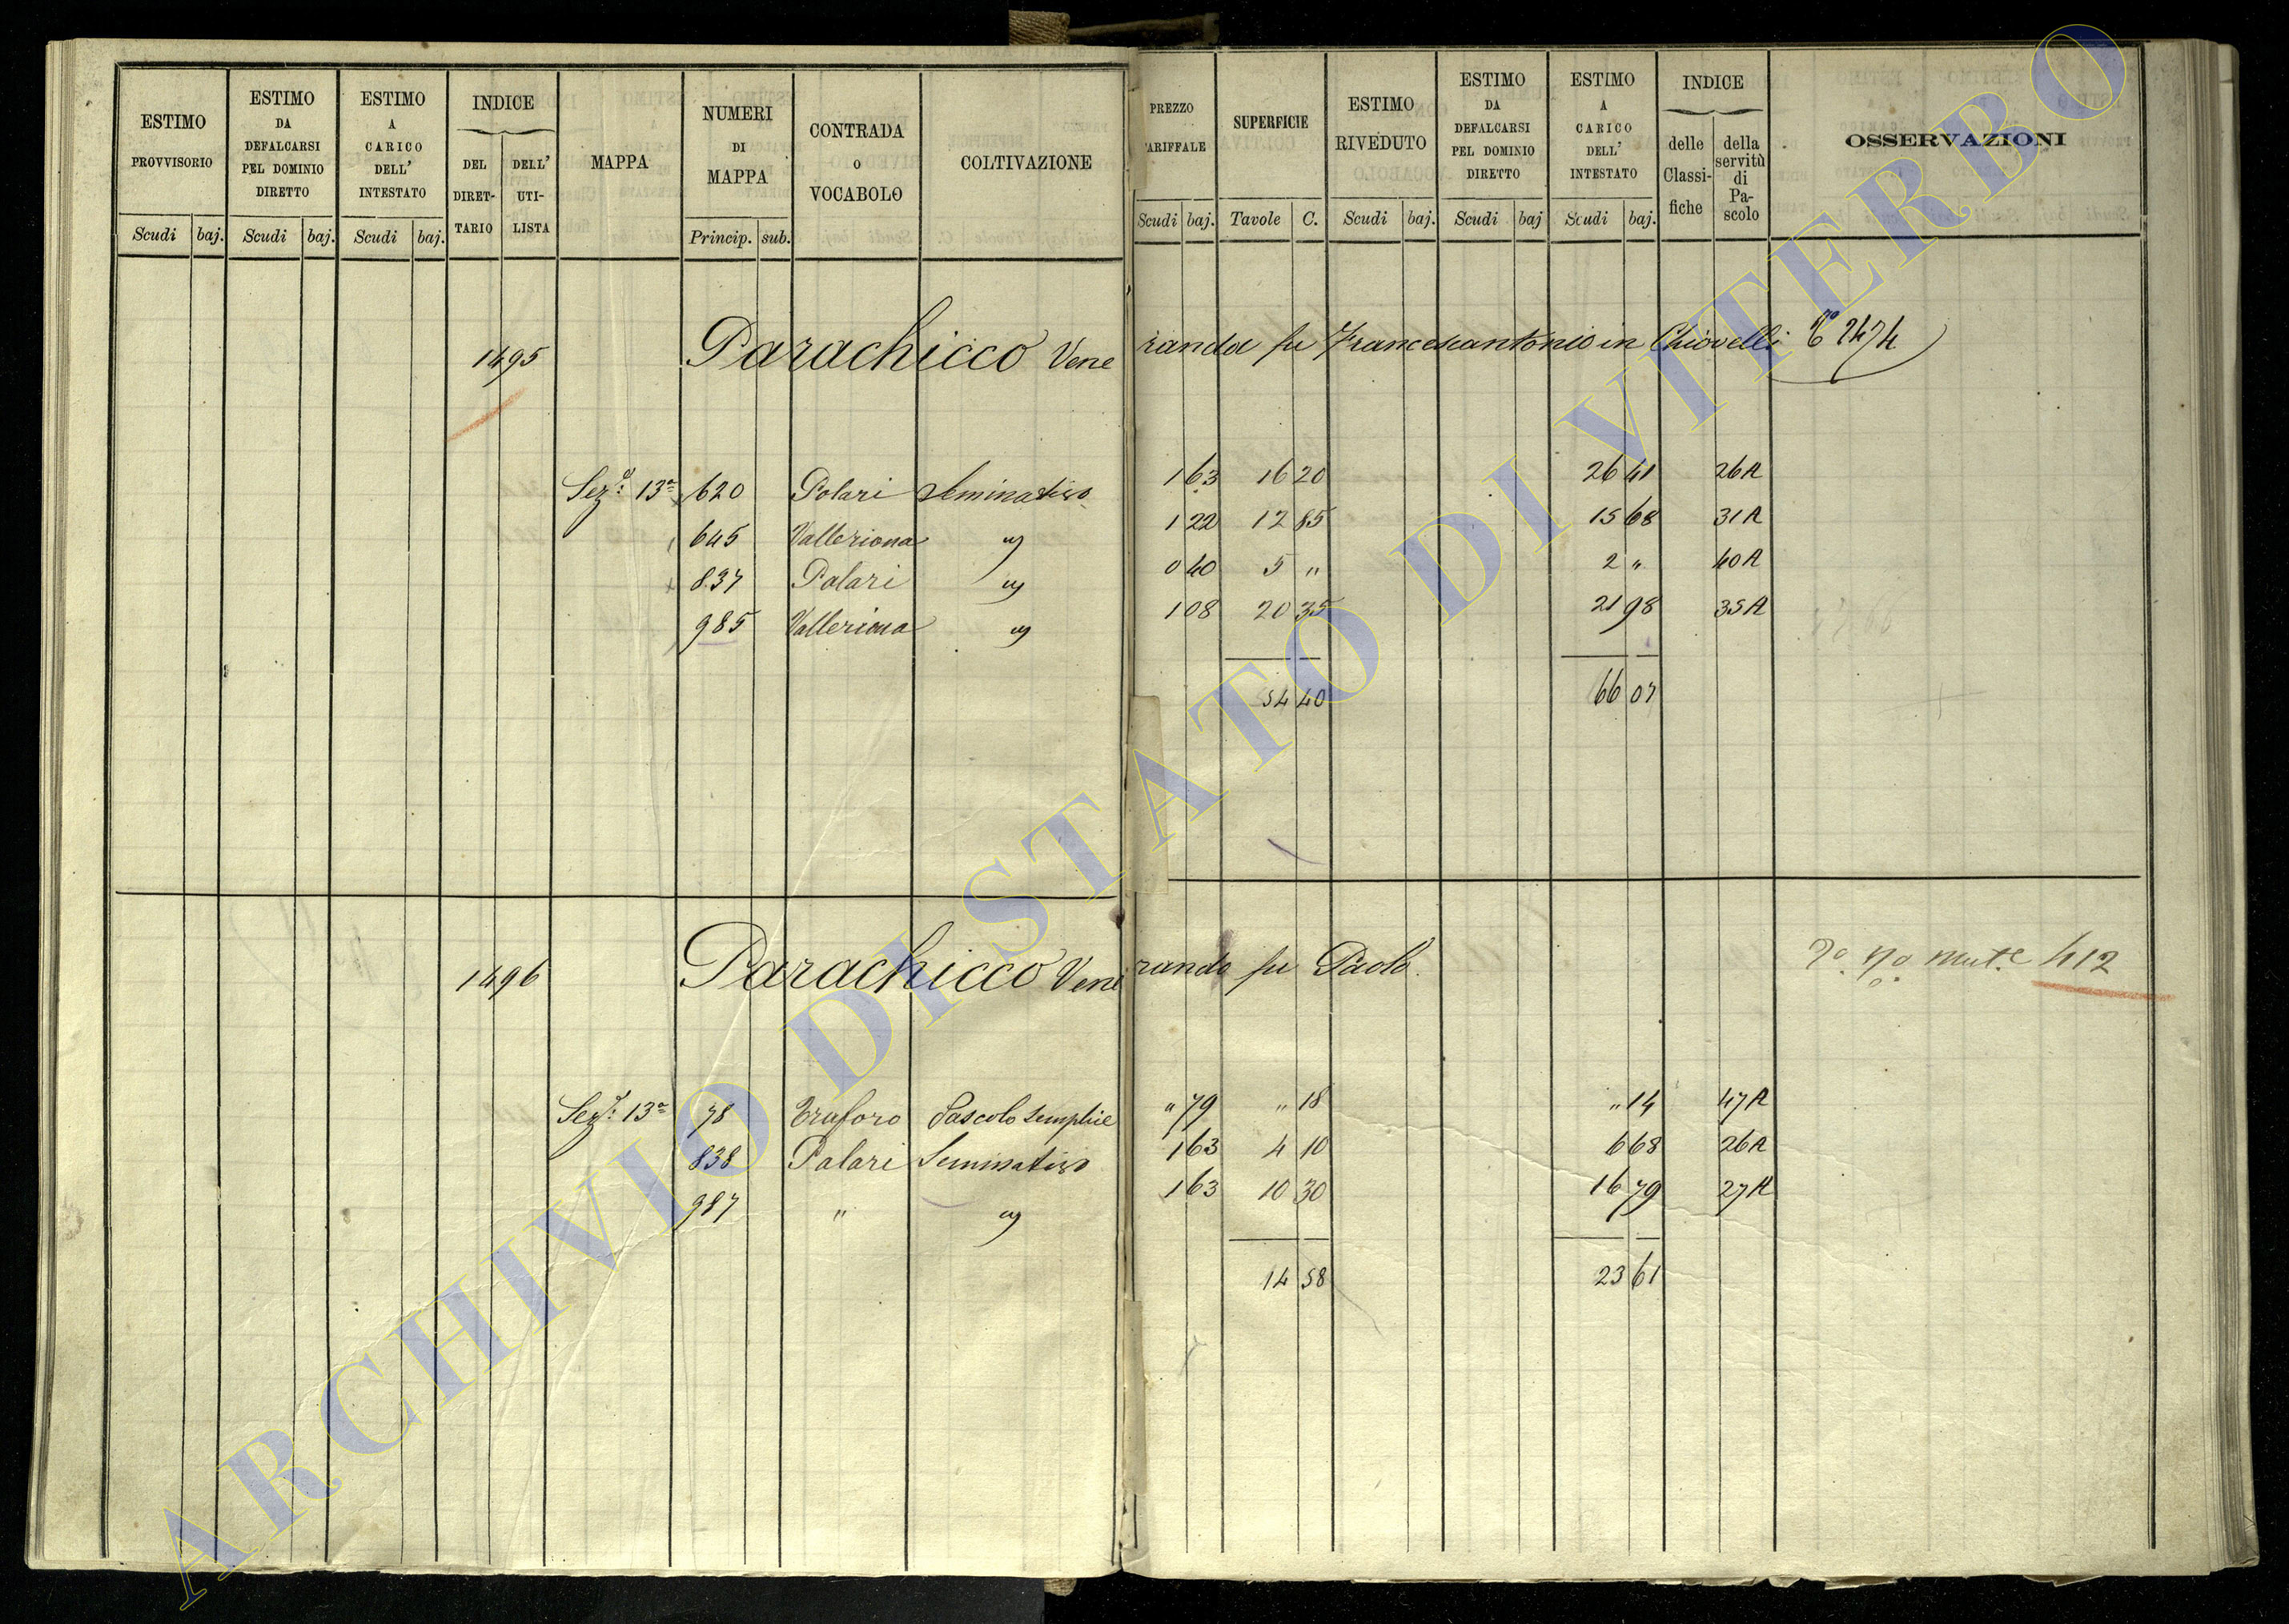 ESTIMO PROVVISORIO
Scudi baj.
ESTIMO DA DEFALCARSI PEL DOMINIO DIRETTO
Scudi baj.
ESTIMO A CARICO DELL' INTESTATO
Scudi baj.
INDICE
DEL DIRET- TARIO
DELL' UTI- LISTA
MAPPA
NUMERI DI MAPPA
Princip. sub.
CONTRADA O VOCABOLO
COLTIVAZIONE
PREZZO TARIFFALE
Scudi baj.
SUPERFICIE
Tavole C.
ESTIMO RIVEDUTO
Scudi baj.
ESTIMO DA DEFALCARSI PEL DOMINIO DIRETTO
Scudi baj
ESTIMO A CARICO DELL' INTESTATO
Scudi baj.
INDICE
delle Classi- fiche
della servitù di Pa- scolo
OSSERVAZIONI
1495 Parachicco Vene randa fu Francescantonio in Chiovelli 2474
Sez.e 13a 620 Polari Seminativo 1 63 16 20 26 41 26A
645 Valleriona " 1 22 12 85 15 68 31A
837 Palari " 0 40 5 " 2 " 40A
985 Valleriona " 1 08 20 35 21 98 35A
54 40 66 07
1496 Parachicco Vene rando fu Paolo. mut.e 412
Sez.e 13a 78 Traforo Pascolo semplice " 79 " 18 " 14 47A
838 Palari Seminativo 1 63 4 10 6 68 26A
987 " " 1 63 10 30 16 79 27A
14 58 23 61
ARCHIVIO DI STATO DI VITERBO